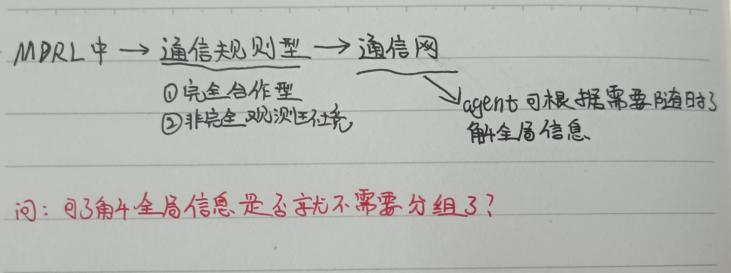 MDRL中 → 通信规则型 → 通信网
①完全合作型
②非完全观测环境
agent可根据需要随时了
解全局信息
问：可了解全局信息是否就不需要分组了？